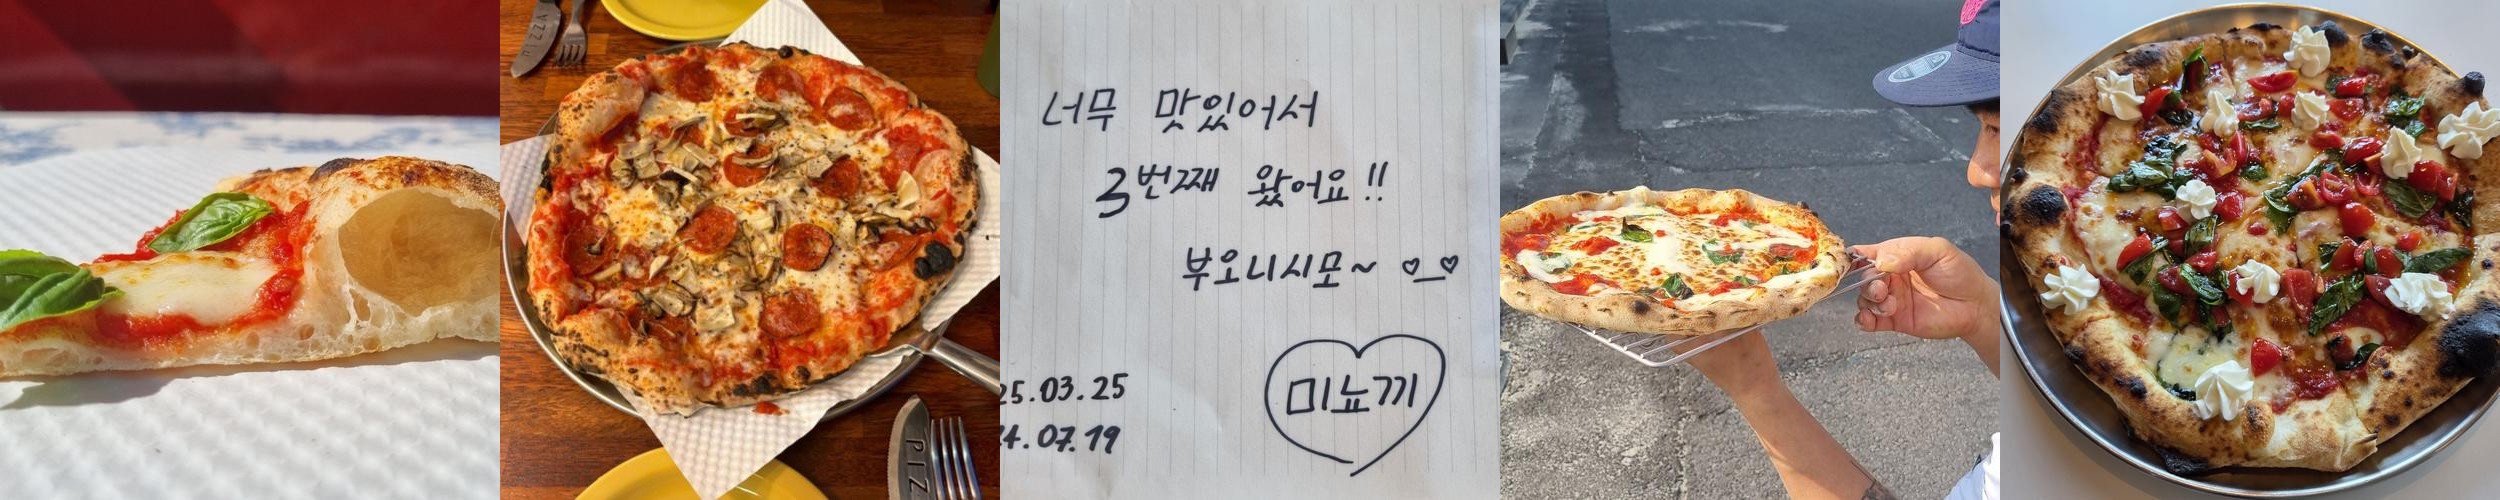 PIZZA
너무 맛있어서
3번째 왔어요!!
부오니시모~
25.03.25
24.07.19
미뇨끼
PIZ